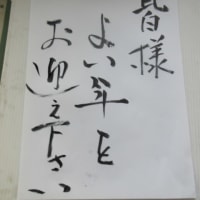 皆様
よい年を
お迎え下さい